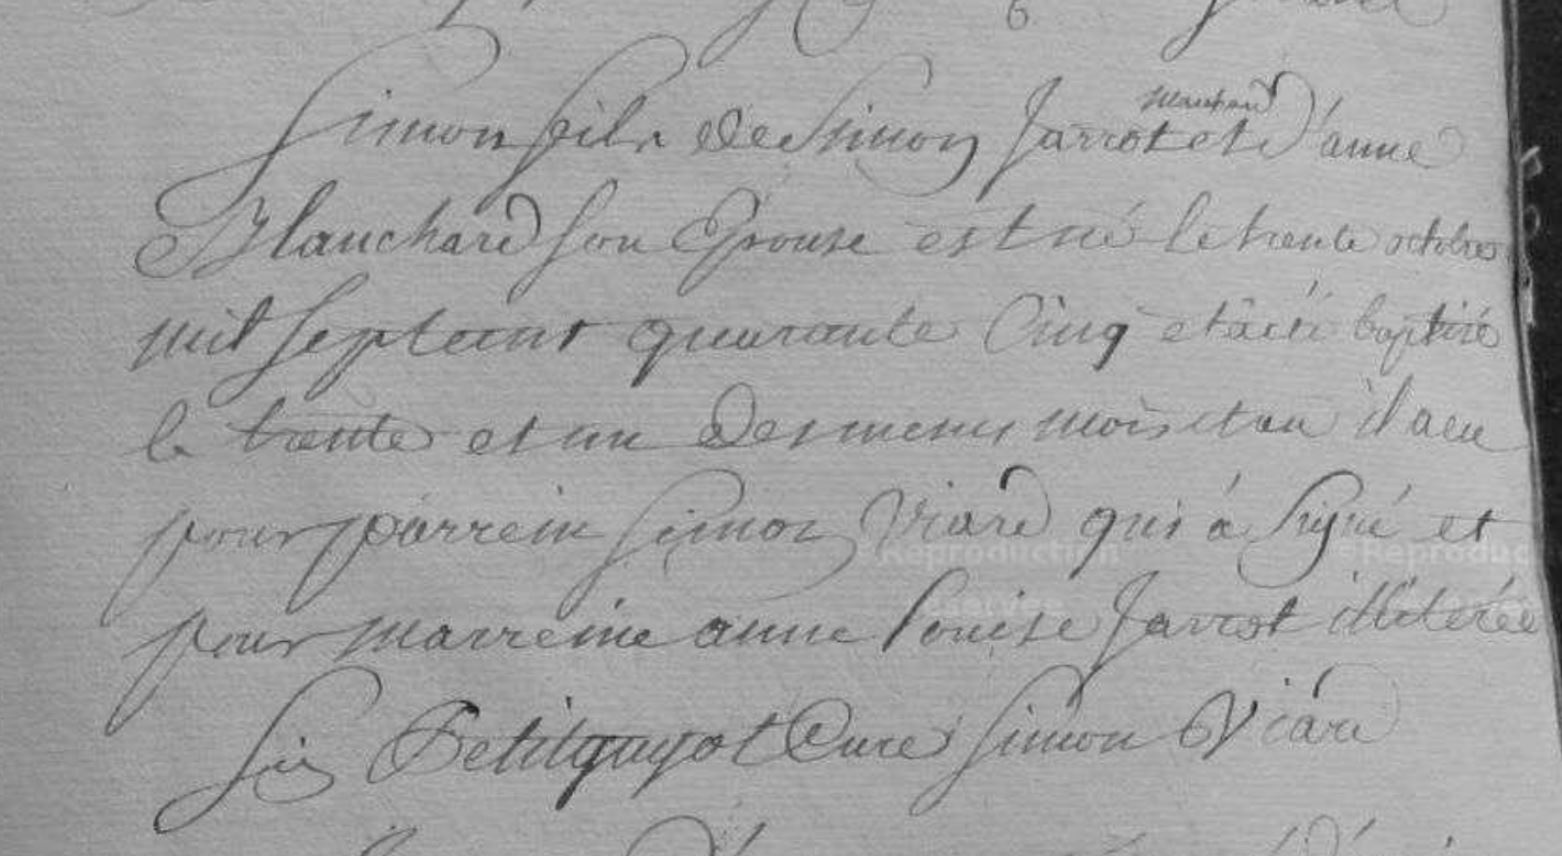 marchand
Simon fils de Simon Jarrot et d'anne
Blanchard son Epouse est né le trente octobre
mil sept cent quarante Cinq et a été baptisé
le trente et un des meme mois et an il a eu
pour parrein Simon Viard qui à signé et
pour marreine anne Louise Jarrot illiterée
Petitguyot Curé Simon Viard
Reproduction Reproduc
réservée